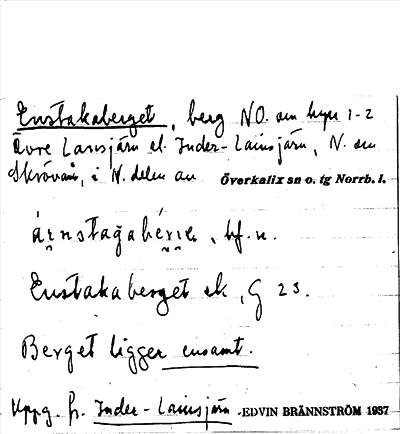 Enstakaberget, berg NO. om byn 1-2
Övre Lansjärn el. Inder-Lainsjärn, N. om
Skrövån, i N. delen av Överkalix sn o. tg Norrb. l.
bf. n.
Enstakaberget ek, G 23.
Berget ligger ensamt.
Uppg. fr. Inder-Lainsjärn EDVIN BRÄNNSTRÖM 1937